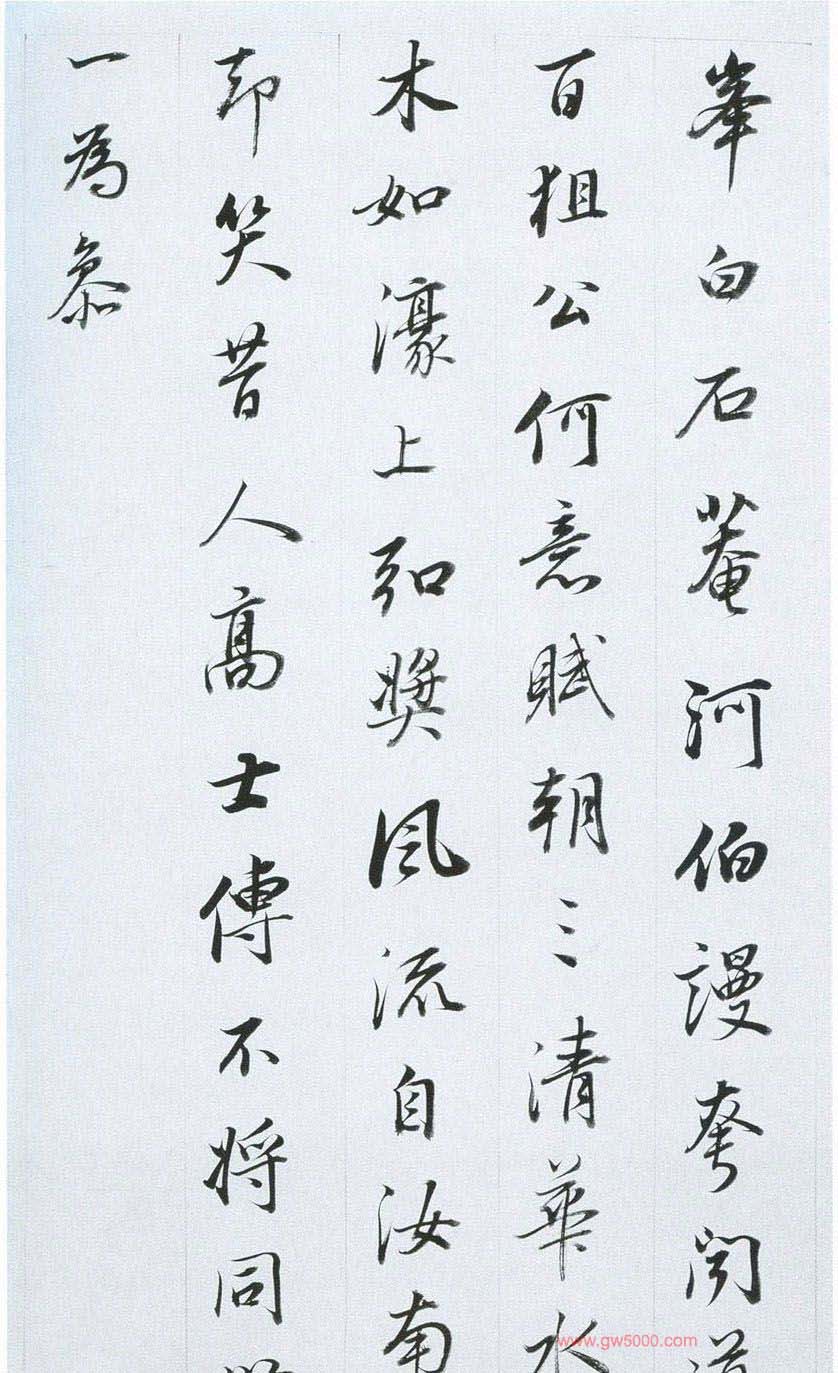 峯白石菴河伯謾夸聞道
百狙公何意賦朝三清華水
木如濠上弘獎風流自汝南
却笑昔人高士傳不將同
一為叅
www.gw5000.com